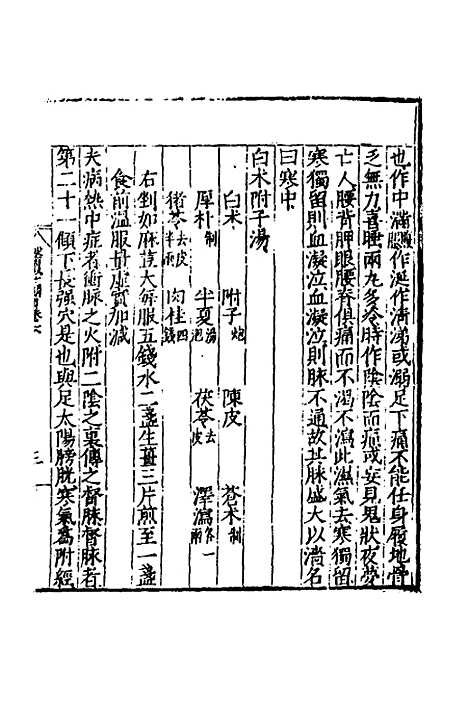 也作中滿腹脹作涎作清涕或溺足下痛不能任身履地骨
乏無力喜睡兩丸多冷時作陰陰而痛或妄見鬼狀夜夢
亡人腰背胛眼腰脊俱痛而不渴不瀉此濕氣去寒獨留
寒獨留則血凝泣血凝泣則脉不通故其脉盛大以濇名
曰寒中
白木附子湯
白木　附子炮　陳皮　蒼木制
厚朴制　半夏湯泡　茯苓去皮　澤瀉各一兩
猪苓去皮半兩　肉桂四錢
右剉如麻豆大每服五錢水二盞生薑三片煎至一盞
食前溫服量虛實加減
夫病熱中症者衝脉之火附二陰之裏傳之督脉督脉者
第二十一傾下長強穴是也與足太陽膀胱寒氣爲附經
三